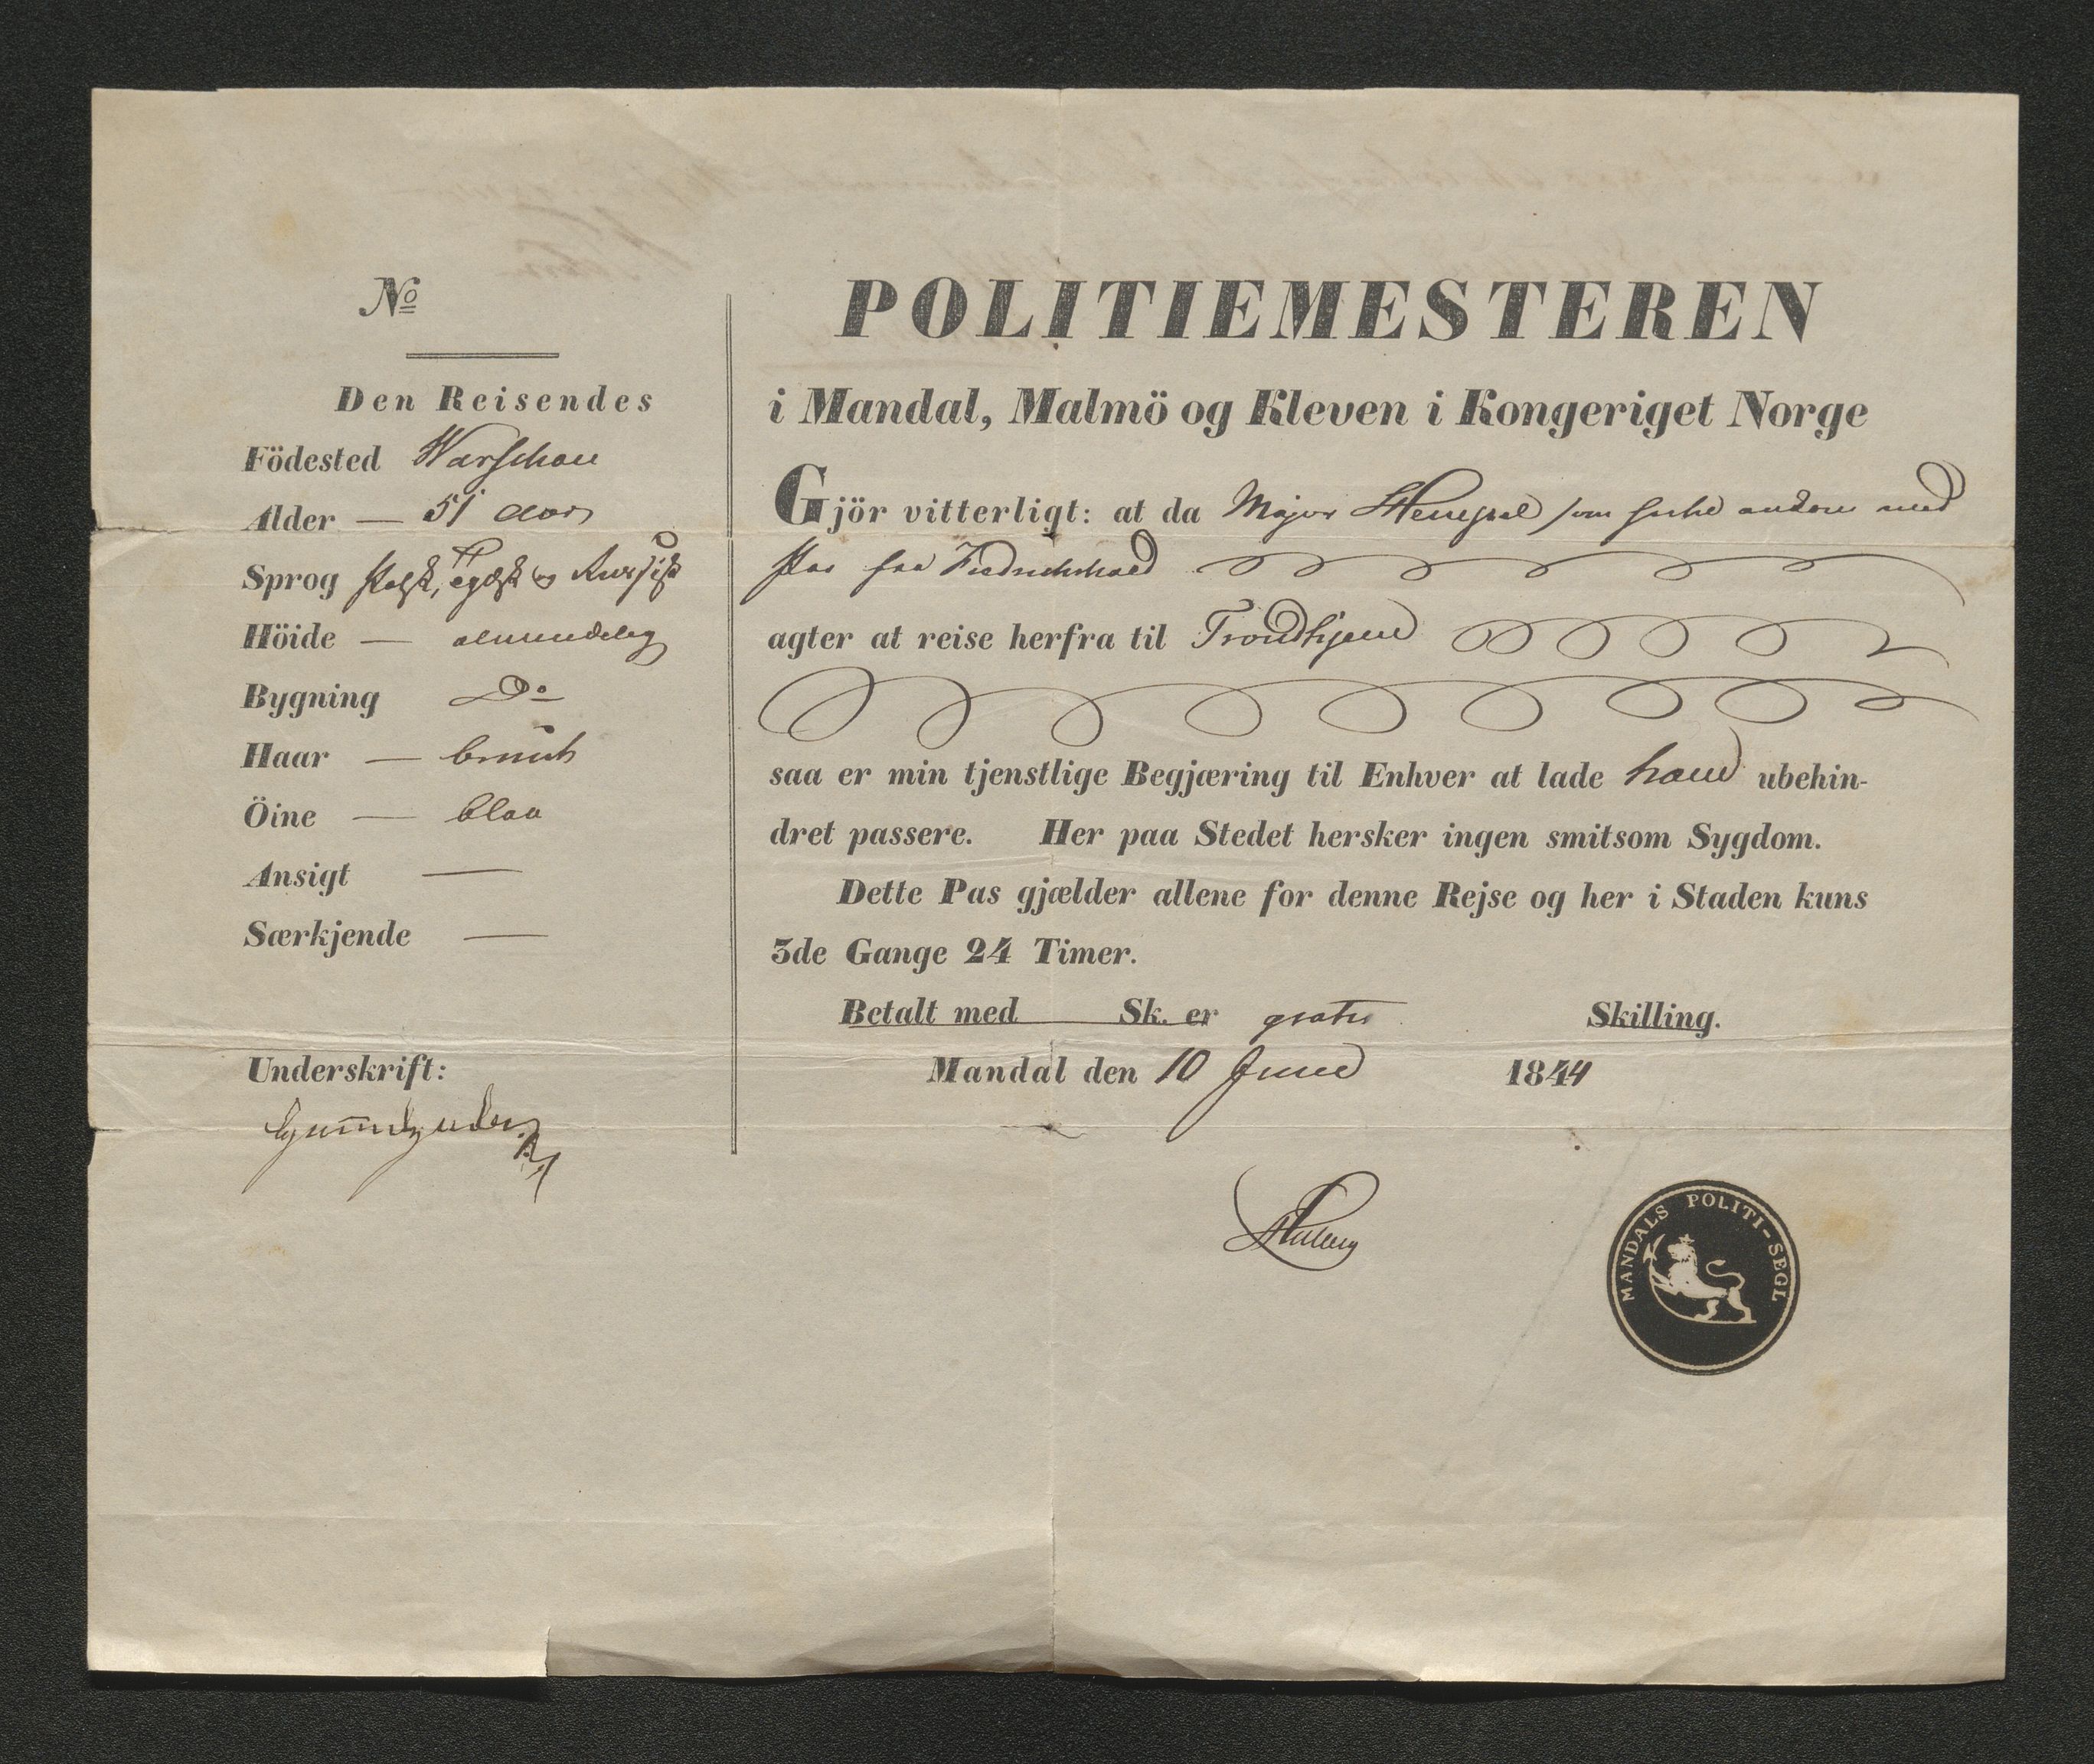 No
Den Reisendes
Födested Warschau
Alder — 51 aar
Sprog Polsk, Tydsk og Russisk
Höide — almindelig
Bygning Do
Haar — bruunt
Öine — blaa
Ansigt —
Særkjende —
Underskrift:
POLITIEMESTEREN
i Mandal, Malmö og Kleven i Kongeriget Norge
Gjör vitterligt: at da Major som med
Pas fra Fredrickshald
agter at reise herfra til Trondhjem
saa er min tjenstlige Begjæring til Enhver at lade ham ubehin-
dret passere. Her paa Stedet hersker ingen smitsom Sygdom.
Dette Pas gjælder allene for denne Rejse og her i Staden kuns
3de Gange 24 Timer.
Betalt med Sk. er gratis Skilling.
Mandal den 10 Juni 1844
MANDALS POLITI-SEGL